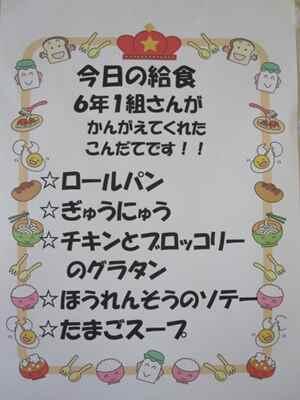 今日の給食
6年1組さんが
かんがえてくれた
こんだてです！！
☆ロールパン
☆ぎゅうにゅう
☆チキンとブロッコリー
のグラタン
☆ほうれんそうのソテー
☆たまごスープ